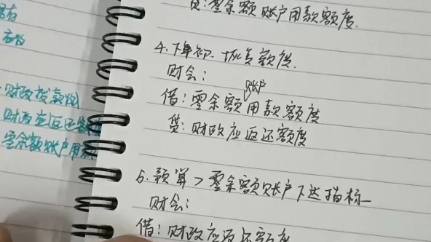 贷:零余额账户用款额度
4.年初.恢复额度.
财会:
借:零余额账户用款额度
贷:财政应返还额度
5.预算>零余额账户下达指标
财会:
借:财政应返还额度
财政拨款
财政应返还
零余额账户用